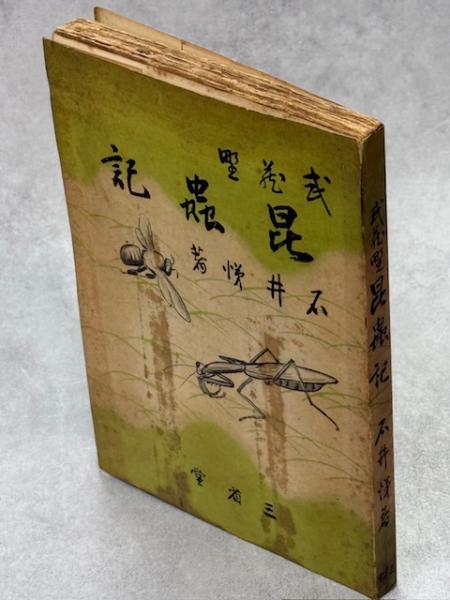 武蔵野
昆蟲記
石井悌著
三省堂
武蔵野昆蟲記
石井悌著